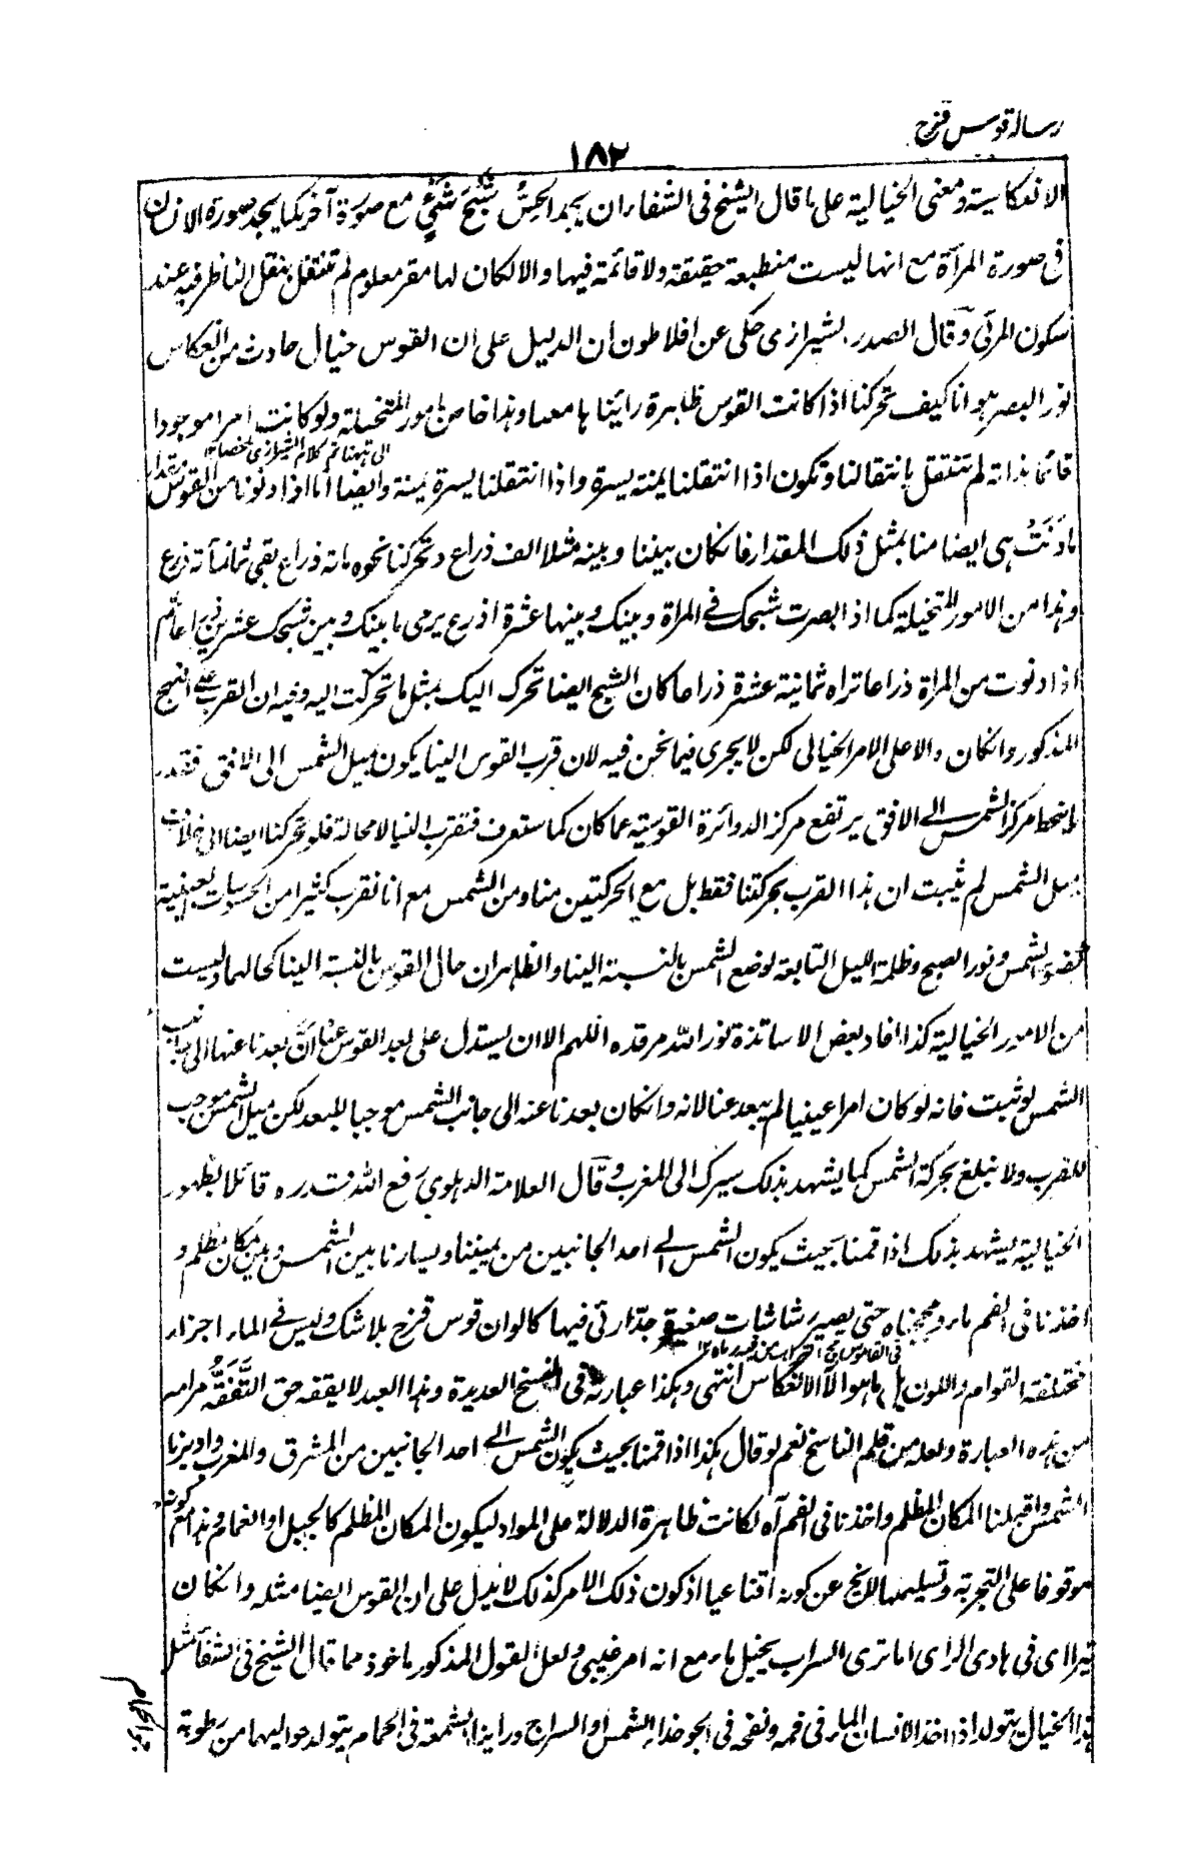 رسالة قوس قزح
١٨٢
الانعكاسية ومعنى الخيالية على ما قال الشيخ فى الشفاء ان يجد الحِسُّ شَبَحَ شَيْءٍ مع صورة آخر كما يجد صورة الانسان
فى صورة المرآة مع انها ليست منطبعة حقيقة ولا قائمة فيها والا لكان لها مقر معلوم لم تنتقل بنقل الناظر فيه عند
سكون المرئى وقال الصدر الشيرازى حكى عن افلاطون ان الدليل على ان القوس خيال حادث من انعكاس
نور البصر هو انا كيف تحركنا اذا كانت القوس ظاهرة رايناها معنا وهذا خاص بامور المتخيلة ولو كانت امرا موجودا
الى ههنا تم كلام الشيرازى ملخصا ١٢
قائما بذاته لم تنتقل بانتقالنا وتكون اذا انتقلنا يمنة يسرة واذا انتقلنا يسرة يمنة وايضا انا اذا دنونا من القوس مقدارا
ما دَنَتْ هى ايضا منا بمثل ذلك المقدار فان كان بيننا وبينه مثلا الف ذراع وتحركنا نحوه مائة ذراع بقى ثمانمائة ذرع
وهذا من الامور المتخيلة كما اذا ابصرت شبحك فى المراة وبينك وبينها عشرة اذرع يرى ما بينك وبين شبحك عشرين ذراعا ثم
اذا دنوت من المراة ذراعا تراه ثمانية عشرة ذراعا كان الشبح ايضا تحرك اليك بمثل ما تحركت اليه وفيه ان القرب على النهج
المذكور وان كان دالا على الامر الخيالى لكن لا يجرى فيما نحن فيه لان قرب القوس الينا يكون بميل الشمس الى الافق فقدر
ما ينحط مركز الشمس الى الافق يرتفع مركز الدوائرة القوسية عما كان كما ستعرف فتقرب الينا لا محالة فلو تحركنا ايضا الى خلاف
ميل الشمس لم يثبت ان هذا القرب بحركتنا فقط بل مع الحركتين منا ومن الشمس مع انا نقرب كثيرا من المحسوسات العينية
كضوء الشمس ونور الصبح وظلمة الليل التابعة لوضع الشمس بالنسبة الينا والظاهر ان حال القوس بالنسبة الينا كحالهما وليست
من الامور الخيالية كذا افاد بعض الاساتذة نور الله مرقده اللهم الا ان يستدل على بعد القوس عنا انَّ بعدنا عنها الى جانب
الشمس لو ثبت فانه لو كان امرا عينيا لم يبعد عنا لانه وان كان بعدنا عنه الى جانب الشمس موجبا للبعد لكن ميل الشمس موجب
للقرب ولا نبلغ بحركة الشمس كما يشهد بذلك سيرك الى المغرب وقال العلامة الدهلوى رفع الله قدره قائلا بظهور
الخيالية يشهد بذلك اذا قمنا بحيث يكون الشمس الى احد الجانبين من يميننا ويسارنا بين الشمس وبين مكان مظلم و
اخذنا فى الفم ماء ومججناه حتى يصير شاشات صغيرة جدّا رئى فيها كالوان قوس قزح بلا شك وليس فى الماء اجزاء
فى القاموس مج الشراب من فيه رماه ١٢
مختلفة القوام واللون ما هو الا الانعكاس انتهى وهكذا عبارته فى النسخ العديدة وهذا العبد لا يفقه حق التَّفَقُّهِ مرامه
من هذه العبارة ولعله من قلم الناسخ نعم لو قال هكذا اذا قمنا بحيث يكون الشمس الى احد الجانبين من المشرق والمغرب وادبرنا
الشمس واقبلنا المكان المظلم واخذنا فى الفم آه لكانت ظاهرة الدلالة على المراد ليكون المكان المظلم كالجبل او الغمام وهذا مع كونه
موقوفا على التجربة وتسليمها لا يخ عن كونه اقناعيا اذ كون ذلك الامر كذلك لا يدل على ان القوس ايضا مثله وان كان
تيرااى فى بادى الراى اما ترى السراب يخيل ماء مع انه امر غيبى ولعل القول المذكور ماخوذ مما قال الشيخ فى الشفاء مثل
هذا الخيال يتولد اذا اخذ الانسان الماء فى فمه ونفخه فى الجو حذاء الشمس او السراج وراينا الشمعة فى الحمام يتولد حواليها من رطوبة
هواء الحمام